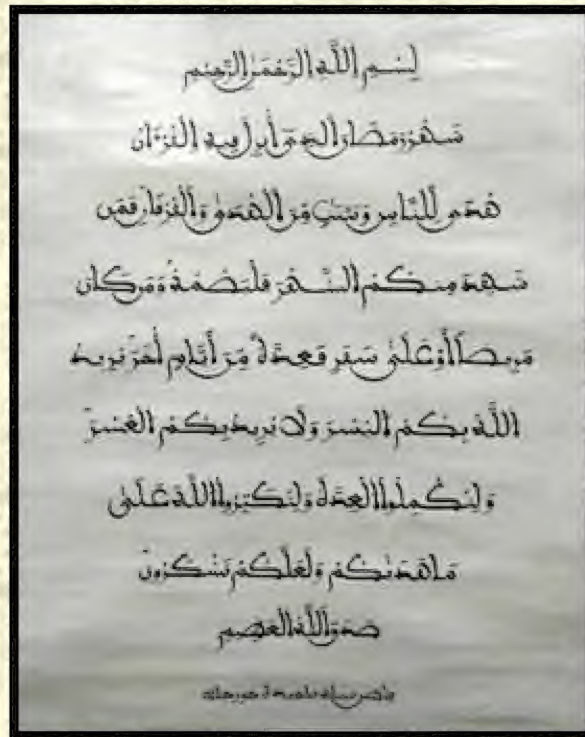 بِسْمِ اللَّهِ الرَّحْمَٰنِ الرَّحِيمِ
شَهْرُ رَمَضَانَ الَّذِي أُنزِلَ فِيهِ الْقُرْءَانُ
هُدًى لِّلنَّاسِ وَبَيِّنَٰتٍ مِّنَ الْهُدَىٰ وَالْفُرْقَانِ فَمَن
شَهِدَ مِنكُمُ الشَّهْرَ فَلْيَصُمْهُ وَمَن كَانَ
مَرِيضًا أَوْ عَلَىٰ سَفَرٍ فَعِدَّةٌ مِّنْ أَيَّامٍ أُخَرَ يُرِيدُ
اللَّهُ بِكُمُ الْيُسْرَ وَلَا يُرِيدُ بِكُمُ الْعُسْرَ
وَلِتُكْمِلُوا الْعِدَّةَ وَلِتُكَبِّرُوا اللَّهَ عَلَىٰ
مَا هَدَىٰكُمْ وَلَعَلَّكُمْ تَشْكُرُونَ
صَدَقَ اللَّهُ الْعَظِيمُ